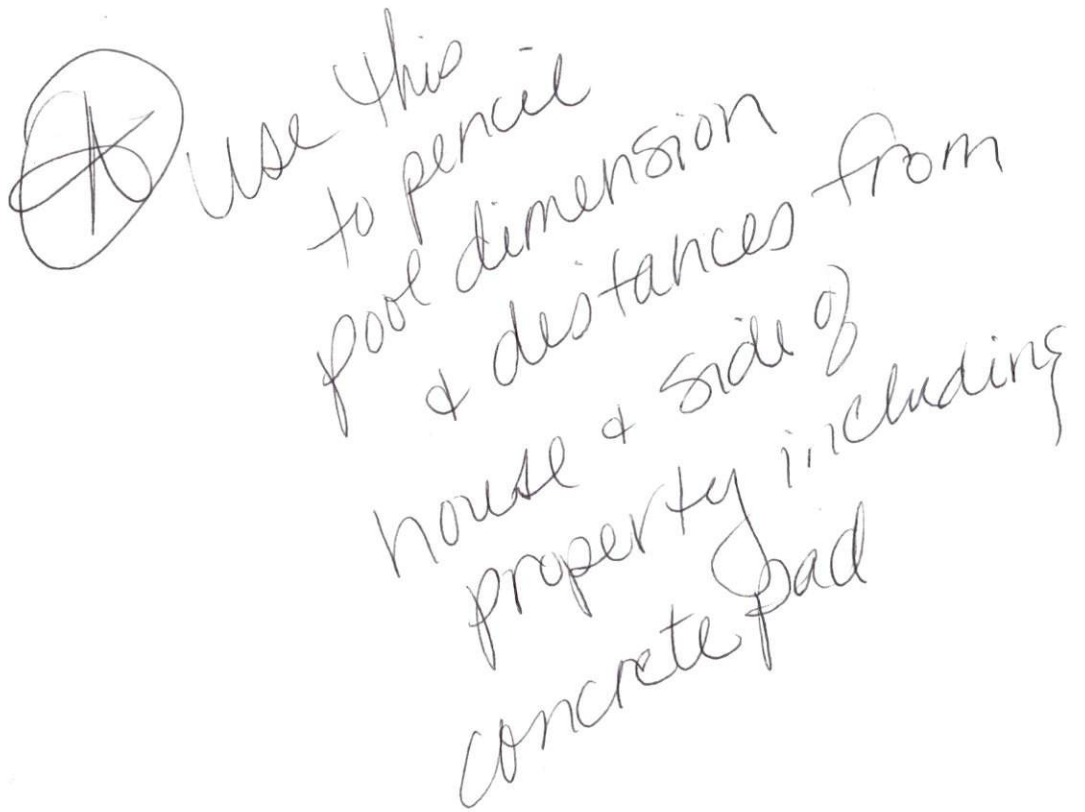 Use this
to pencil
pool dimension
& distances from
house & side of
property including
concrete pad